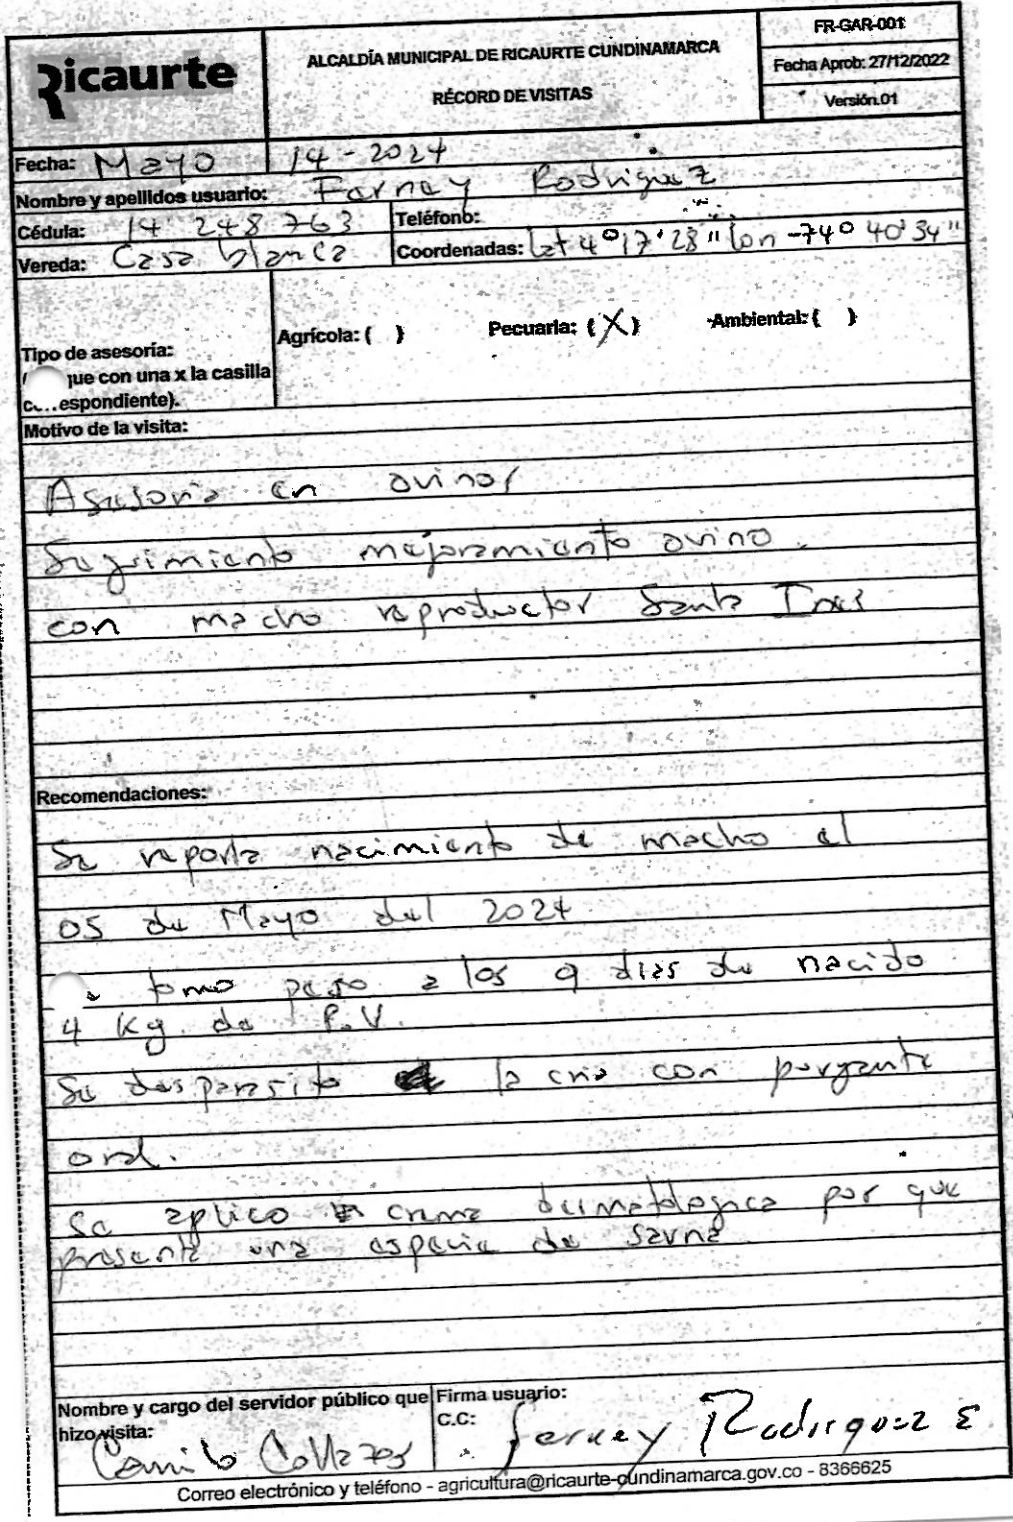 Ricaurte
ALCALDÍA MUNICIPAL DE RICAURTE CUNDINAMARCA
RÉCORD DE VISITAS
FR-GAR-001
Fecha Aprob: 27/12/2022
Versión.01
Fecha: Mayo 14-2024
Nombre y apellidos usuario: Farney Rodriguez
Cédula: 14 248 763 Teléfono:
Vereda: Casa blanca Coordenadas: Lat 4°17'28" lon -74° 40'34"
Tipo de asesoría:
que con una x la casilla
correspondiente).
Agrícola: ( ) Pecuaria: (X) Ambiental: ( )
Motivo de la visita:
Asesoria en ovinos
Seguimiento mejoramiento ovino.
con macho reproductor Santa Ines
Recomendaciones:
Se reporta nacimiento de macho el
05 de Mayo del 2024
tomo peso a los 9 dias de nacido
4 Kg de P.V.
Se desparasito la cria con purgante
oral.
Se aplico crema dermatologica por que
presenta una especie de sarna
Nombre y cargo del servidor público que
hizo visita:
Camilo Collazos
Firma usuario:
C.C:
Farney Rodriguez E
Correo electrónico y teléfono - agricultura@ricaurte-cundinamarca.gov.co - 8366625